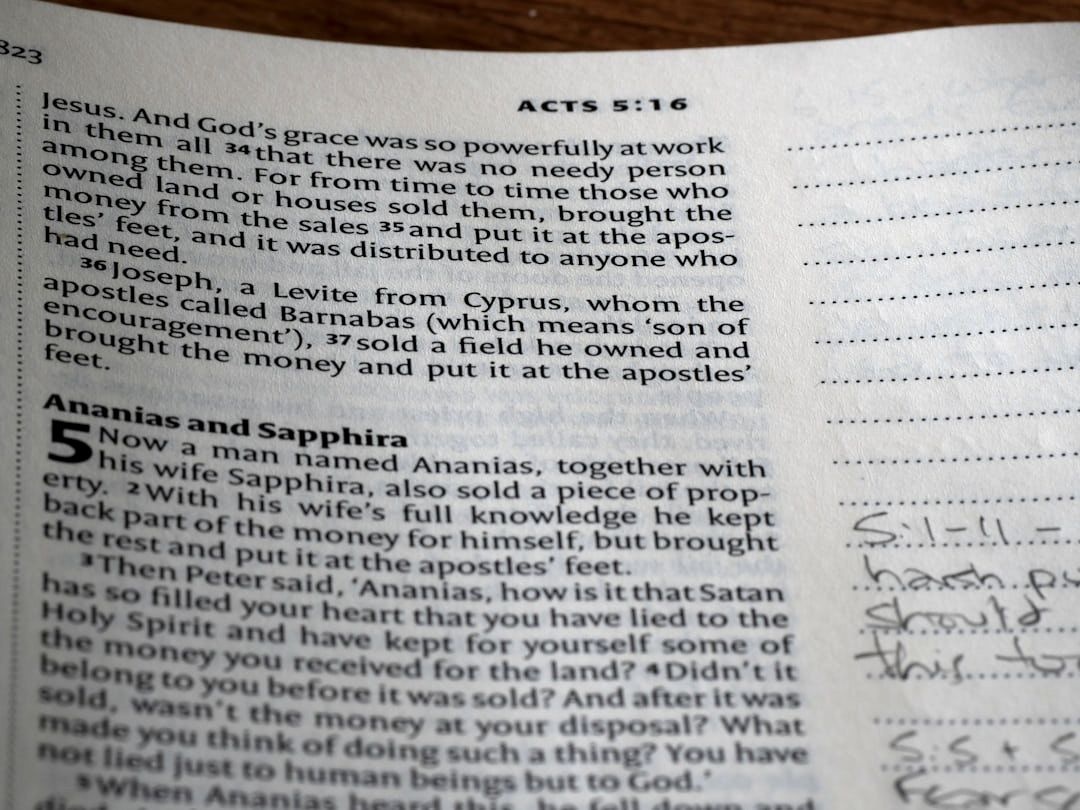 323
ACTS 5:16
Jesus. And God's grace was so powerfully at work
in them all 34 that there was no needy person
among them. For from time to time those who
owned land or houses sold them, brought the
money from the sales 35 and put it at the apos-
tles' feet, and it was distributed to anyone who
had need.
36 Joseph, a Levite from Cyprus, whom the
apostles called Barnabas (which means 'son of
encouragement'), 37 sold a field he owned and
brought the money and put it at the apostles'
feet.
Ananias and Sapphira
5 Now a man named Ananias, together with
his wife Sapphira, also sold a piece of prop-
erty. 2 With his wife's full knowledge he kept
back part of the money for himself, but brought
the rest and put it at the apostles' feet.
3 Then Peter said, 'Ananias, how is it that Satan
has so filled your heart that you have lied to the
Holy Spirit and have kept for yourself some of
the money you received for the land? 4 Didn't it
belong to you before it was sold? And after it was
sold, wasn't the money at your disposal? What
made you think of doing such a thing? You have
not lied just to human beings but to God.'
5 When Ananias heard this, he fell down and
5:1-11 -
harsh
should
this
5:5 +